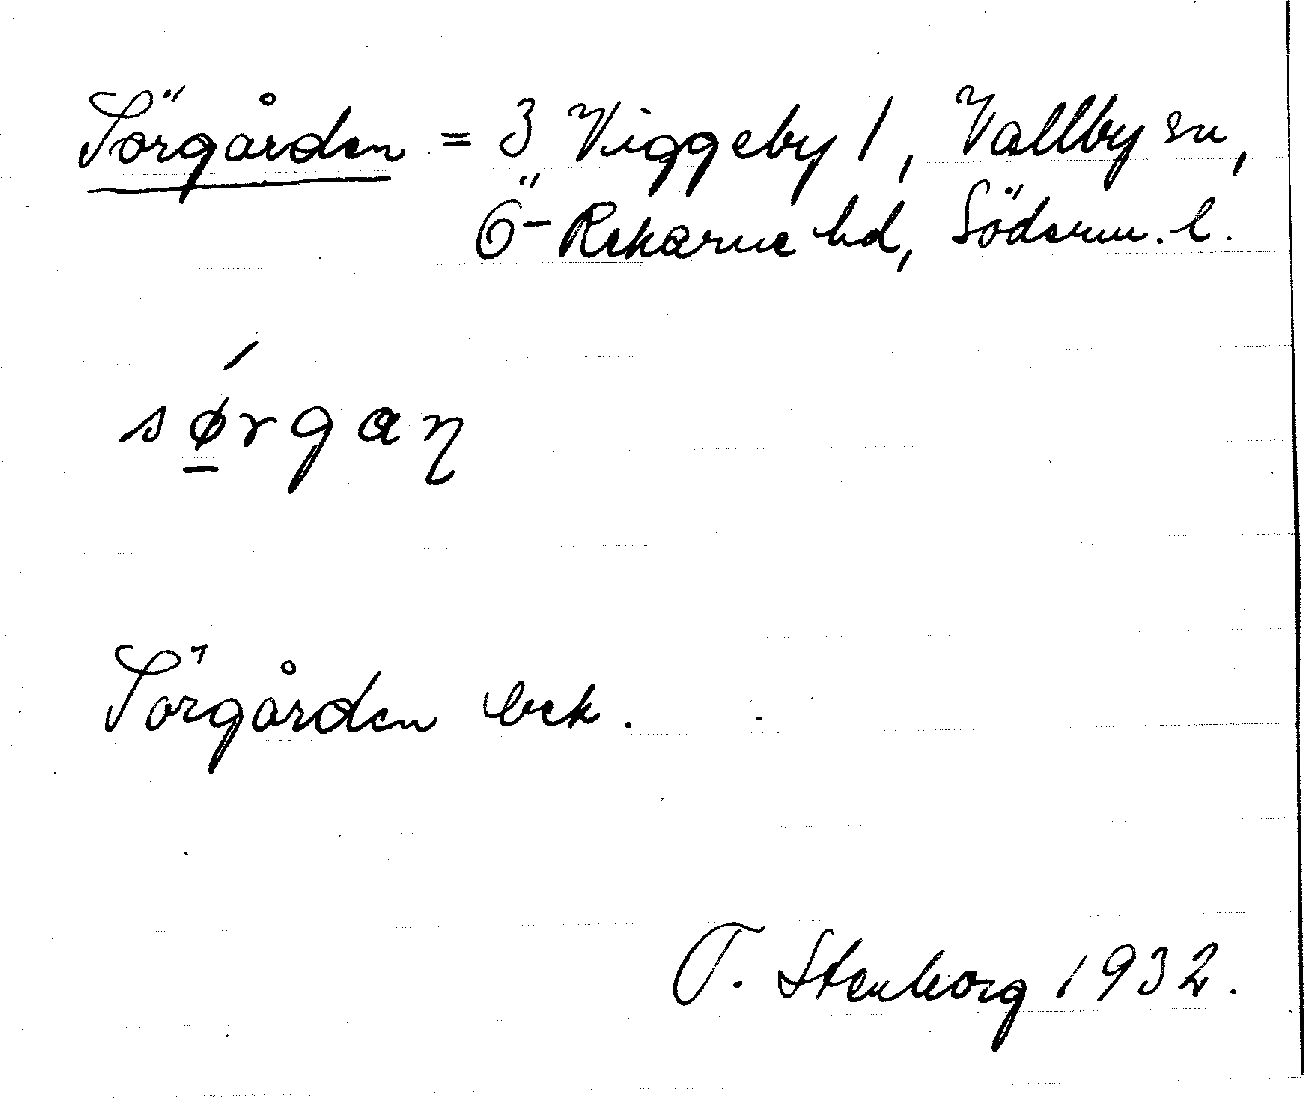 Sörgården = 3 Viggeby 1, Vallby sn,
Ö-Rekarne hd, Söderm. l.
sǿ̱rgaɳ
Sörgården bek.
T. Stenborg 1932.